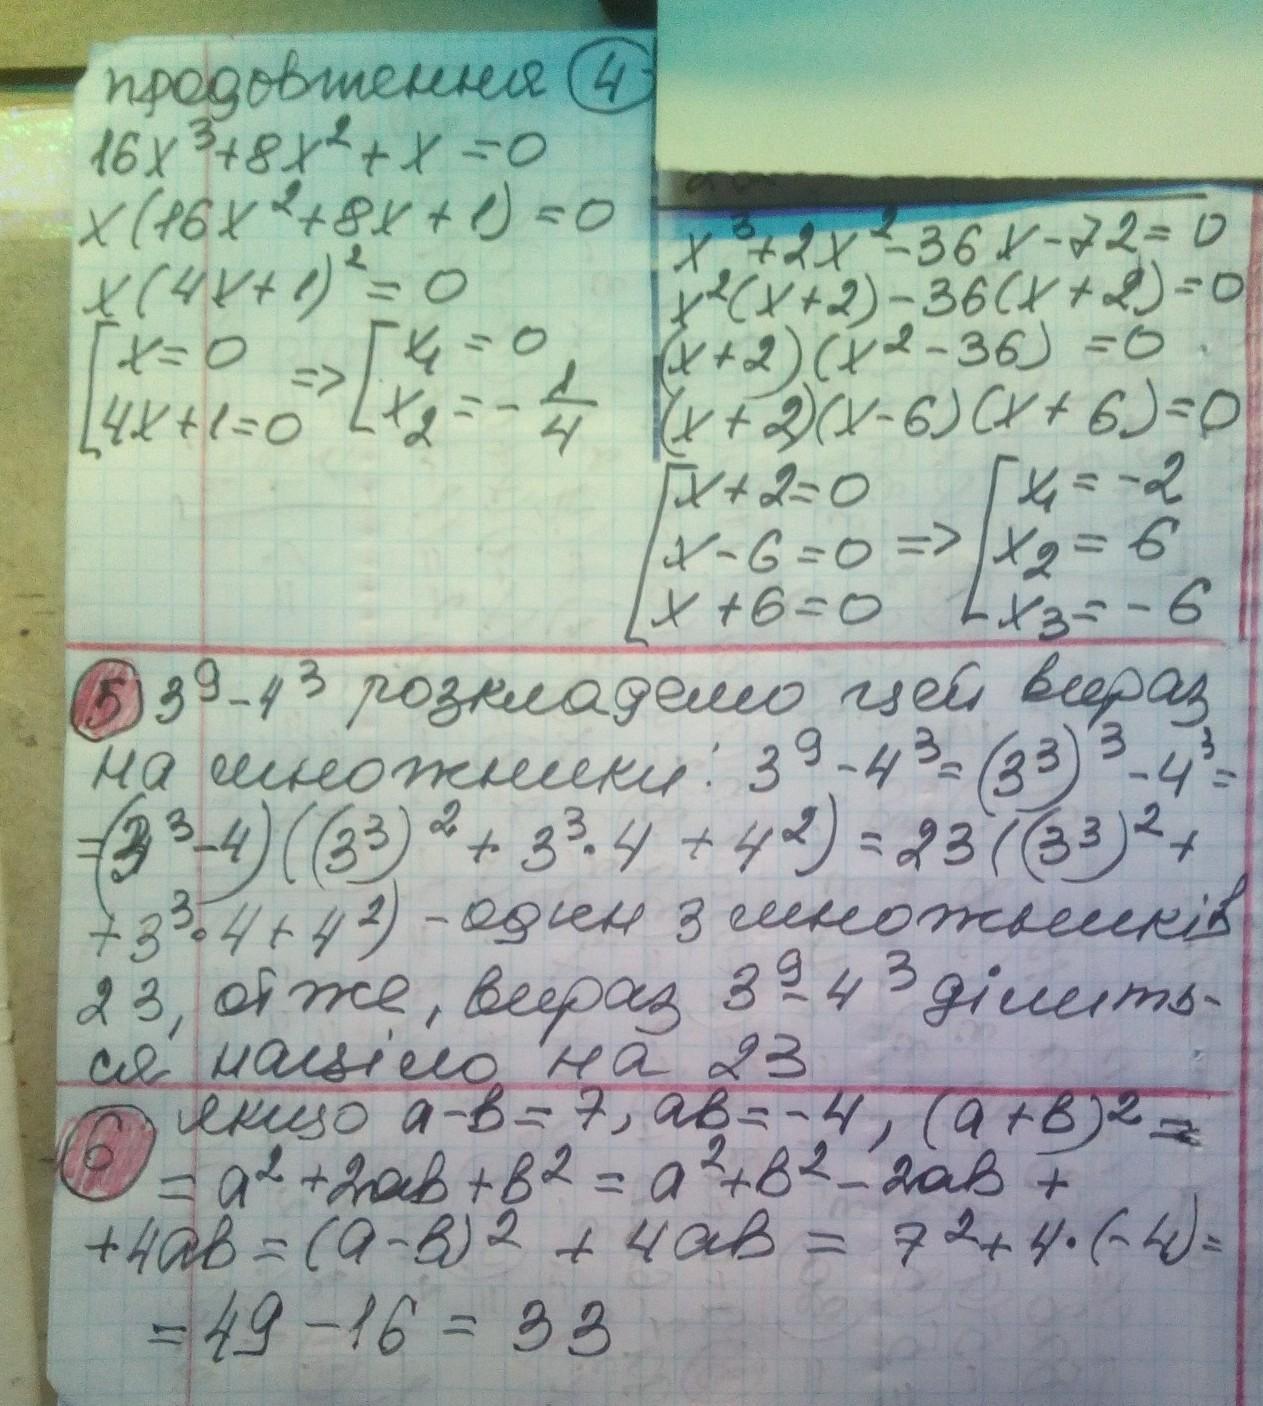 продовження 4
16x³+8x²+x=0
x(16x²+8x+1)=0
x(4x+1)²=0
[x=0 => [x₁=0
[4x+1=0 [x₂=-1/4
x³+2x²-36x-72=0
x²(x+2)-36(x+2)=0
(x+2)(x²-36)=0
(x+2)(x-6)(x+6)=0
[x+2=0 [x₁=-2
x-6=0 => x₂=6
x+6=0 x₃=-6
5 3⁹-4³ розкладемо цей вираз
на множники: 3⁹-4³=(3³)³-4³=
=(3³-4)((3³)²+3³·4+4²)=23((3³)²+
+3³·4+4²) - один з множників
23, отже, вираз 3⁹-4³ ділить-
ся націло на 23
6 якщо a-b=7, ab=-4, (a+b)²=
=a²+2ab+b²=a²+b²-2ab+
+4ab=(a-b)²+4ab=7²+4·(-4)=
=49-16=33